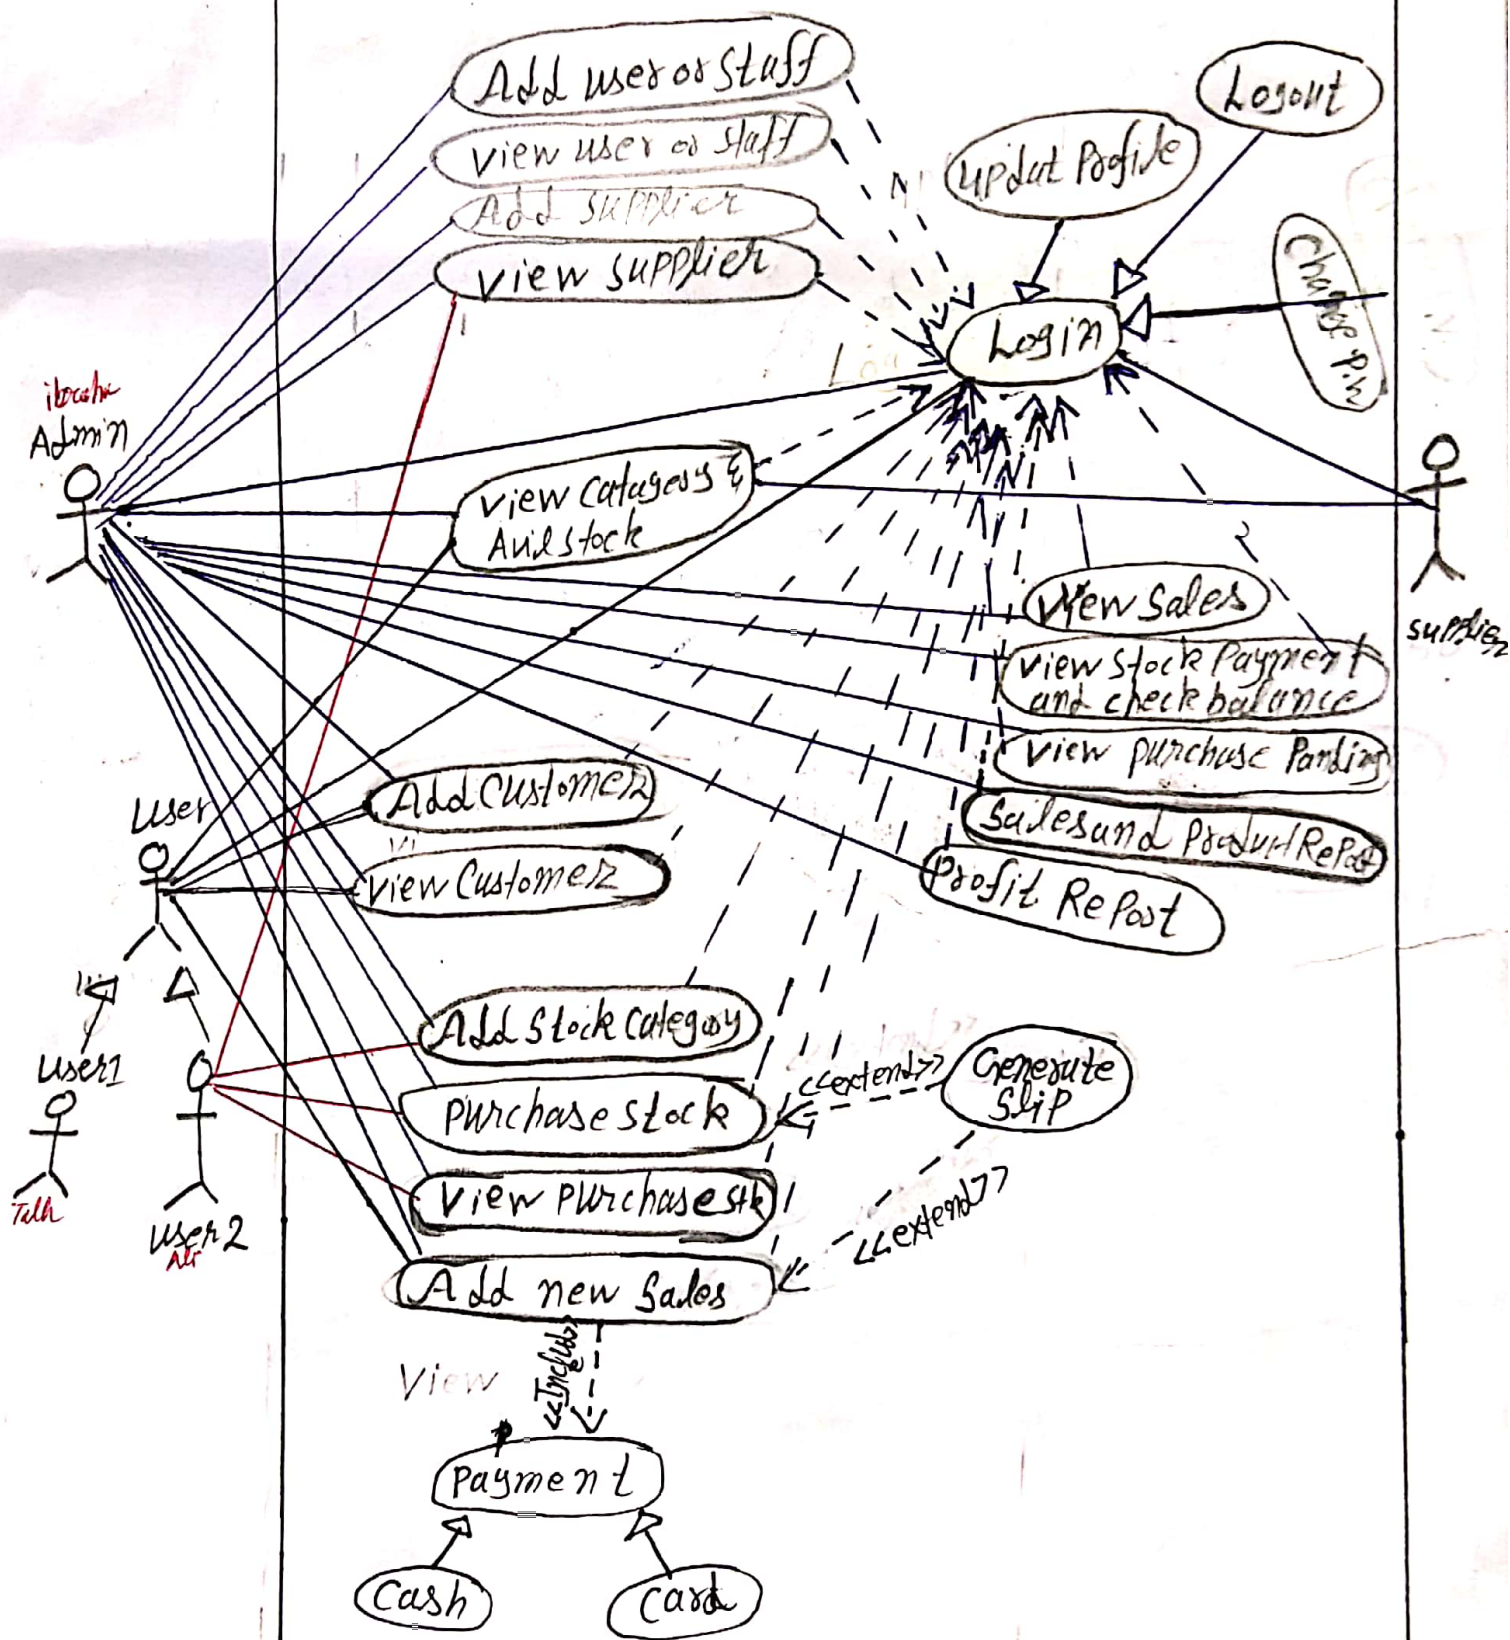 Add user or Staff
View user or Staff
Add Supplier
View Supplier
Logout
Updat Profile
Change Pin
Login
Admin
View Catagory &
Avilstock
View Sales
View Stock Payment
and check balance
View Purchase Panding
Sales and Product Report
Profit Report
Supplier
User
Add Customer
View Customer
Add Stock Category
Purchase Stock
View Purchase Stk
Add new Sales
<<extend>>
Generate
Slip
<<extend>>
User1
Talh
User2
Ali
<<Include>>
View
Payment
Cash
Card